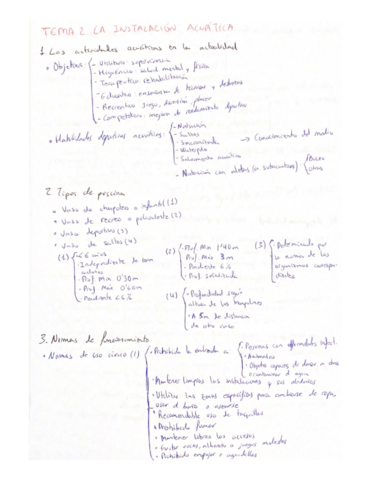 TEMA 2. LA INSTALACIÓN ACUÁTICA
1. Las actividades acuáticas en la actualidad
• Objetivos:
- Utilitario: supervivencia
- Higiénico: salud mental y física
- Terapéutico: rehabilitación
- Educativo: enseñanza de técnicas y destrezas
- Recreativo: juego, diversión, placer
- Competitivo: mejora de rendimiento deportivo
• Modalidades deportivas acuáticas:
- Natación
- Saltos
- Sincronizada
- Waterpolo
- Salvamento acuático
→ Conocimiento del medio
- Natación con aletas (o subacuáticas)
2. Tipos de piscina
• Vaso de chapoteo o infantil (1)
• Vaso de recreo o polivalente (2)
• Vaso deportivo (3)
• Vaso de saltos (4)
(1)
- <6 años
- Independiente de
- Prof Mín 0'30m
- Prof Máx 0'60m
- Pendiente <6%
(2)
- Prof. Mín 1'40m
- Prof. Máx 3m
- Pendiente 6%
- Prof señalizada
(3)
- Determinado por
la norma de los
organismos correspon-
dientes
(4)
- Profundidad según
altura de los trampolines
- A 5m de distancia
de otro vaso
3. Normas de funcionamiento
• Normas de uso cívico (1)
- Prohibida la entrada a
- Personas con enfermedades infect.
- Animales
- Objetos capaces de dañar a otros
o contaminar el agua
- Mantener limpias las instalaciones y sus
- Utilizar las zonas específicas para cambiarse de ropa,
usar
• Recomendable uso de taquillas
• Prohibido fumar
• Mantener libres los accesos
• Evitar voces, alborotos o juegos molestos
• Prohibido empujar o